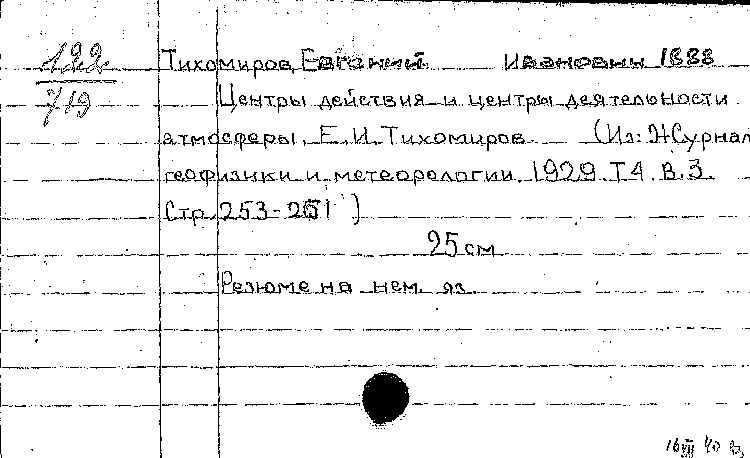 122
719
Тихомиров, Евгений Иванович 1888
Центры действия и центры деятельности
атмосферы. Е.И. Тихомиров. (Из: Журнал
геофизики и метеорологии. 1929. Т.4. В.3.
Стр. 253-261)
25 см
Резюме на нем. яз.
16 VII 40